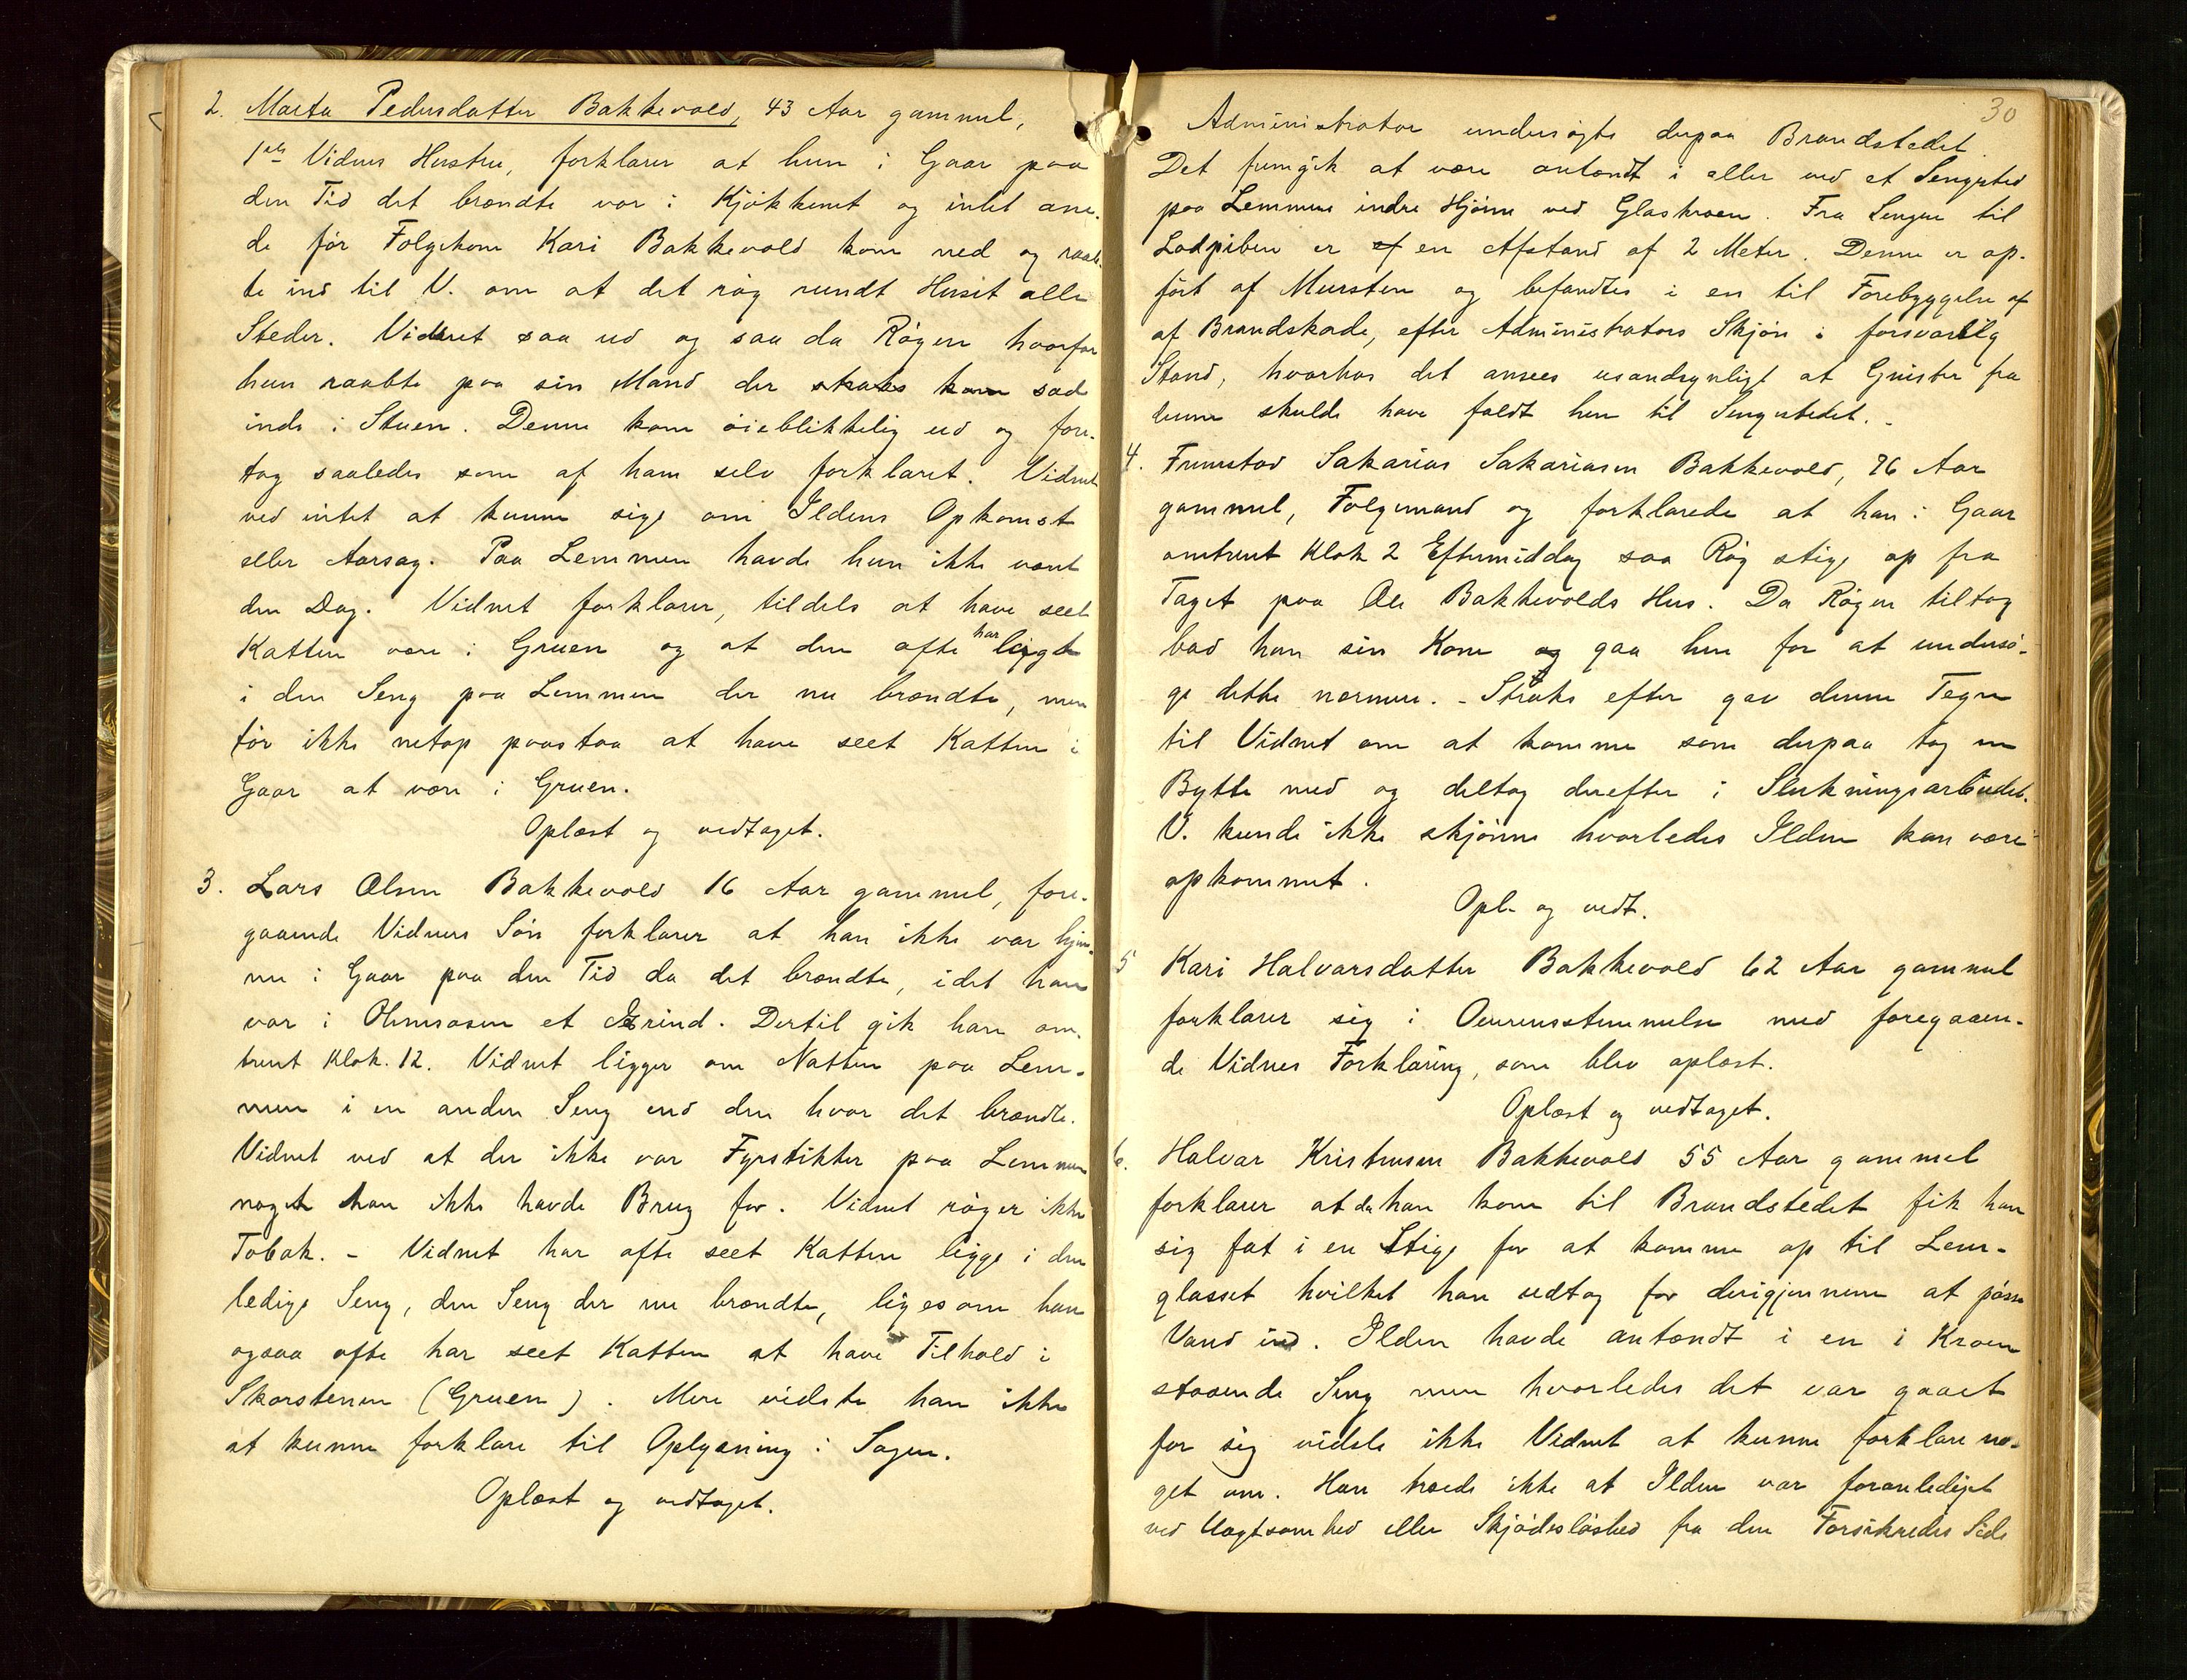 2. Marta Pedersdatter Bakkevold, 43 Aar gammel,
1ste Vidnes Hustru, forklarer at hun i Gaar paa
den Tid det brændte var i Kjøkkenet og intet ane-
de før Folgekone Kari Bakkevold kom ned og raab-
te ind til V. om at det røg rundt Huset alle
Steder. Vidnet saa ud og saa da Røgen hvorfor
hun raabte paa sin Mand der straks kom sad
inde i Stuen. Denne kom øieblikkelig ud og fore-
tog saaledes som af ham selv forklaret. Vidnet
ved intet at kunne sige om Ildens Opkomst
eller Aarsag. Paa Lemmen havde hun ikke været
den Dag. Vidnet forklarer, tildels at have seet
Katten være i Gruen og at den ofte har ligget
i den Seng paa Lemmen der nu brændte, men
tør ikke netop paastaa at have seet Katten i
Gaar at være i Gruen.
Oplæst og vedtaget.
3. Lars Olsen Bakkevold 16 Aar gammel, fore-
gaaende Vidnes Søn forklarer at han ikke var hjem-
me i Gaar paa den Tid da det brændte, idet han
var i et Ærind. Dertil gik han om-
trent Klok. 12. Vidnet ligger om Natten paa Lem-
men i en anden Seng end den hvor det brændte.
Vidnet ved at der ikke var Fyrstikker paa Lemmen
noget han ikke havde Brug for. Vidnet røger ikke
Tobak. - Vidnet har ofte seet Katten ligge i den
ledige Seng, den Seng der nu brændte, ligesom han
ogsaa ofte har seet Katten at have Tilhold i
Skorstenen (Gruen). Mere vidste han ikke
at kunne forklare til Oplysning i Sagen.
Oplæst og vedtaget.
30
Administrator undersøgte derpaa Brandstedet.
Det fremgik at være antændt i eller ved et Sengested
paa Lemmens indre Hjørne ved Glaskroen. Fra Sengen til
Lodpiben er af en Afstand af 2 Meter. Denne er op-
ført af Mursten og befandtes i en til Forebyggelse af
af Brandskade, efter Administrators Skjøn i forsvarlig
Stand, hvorhos det ansees usandsynligt at Gnister fra
denne skulde have faldt hen til Sengestedet. -
4. Fremstod Sakarias Sakariasen Bakkevold, 76 Aar
gammel, Folgemand og forklarede at han i Gaar
omtrent Klok 2 Eftermiddag saa Røg stige op fra
Taget paa Ole Bakkevolds Hus. Da Røgen tiltog
bad han sin Kone og gaa hen for at undersø-
ge dette nærmere. - Straks efter gav denne Tegn
til Vidnet om at komme som derpaa tog en
Bytte med og deltog derefter i Slukningsarbeidet.
V. kunde ikke skjønne hvorledes Ilden kan være
opkommet.
Opl. og vedt.
5 Kari Halvarsdatter Bakkevold 62 Aar gammel
forklarer sig i Overensstemmelse med foregaaen-
de Vidnes Forklaring, som blev oplæst.
Oplæst og vedtaget.
6. Halvar Kristensen Bakkevold 55 Aar gammel
forklarer at da han kom til Brandstedet fik han
sig fat i en Stige for at komme op til Lem-
glasset hvilket han udtog for derigjennem at pøsse
Vand ind. Ilden havde antændt i en i Kroen
staaende Seng men hvorledes det var gaaet
for sig vidste ikke Vidnet at kunne forklare no-
get om. Han troede ikke at Ilden var foranlediget
ved Uagtsomhed eller Skjødesløshed fra den Forsikredes Side